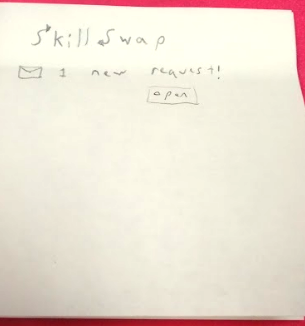 SkillSwap
1 new request!
open